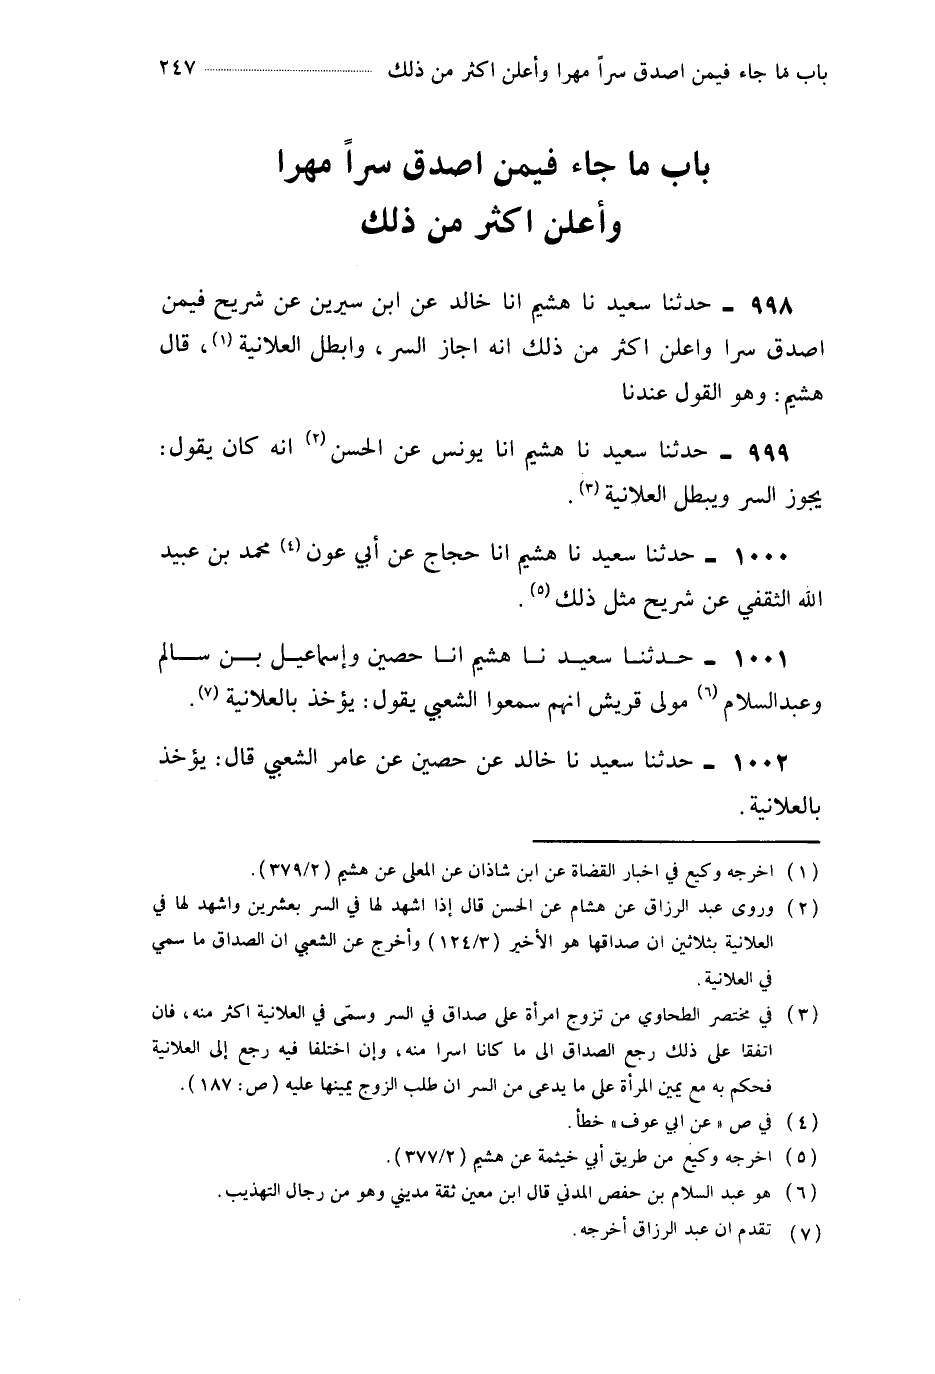 باب مَا جاء فيمن اصدق سراً مهرا وأعلن اكثر من ذلك ........ ٢٤٧
باب ما جاء فيمن اصدق سراً مهرا
وأعلن اكثر من ذلك
٩٩٨ ـ حدثنا سعيد نا هشيم انا خالد عن ابن سيرين عن شريح فيمن
اصدق سرا واعلن اكثر من ذلك انه اجاز السر ، وابطل العلانية (١)، قال
هشيم : وهو القول عندنا
٩٩٩ ـ حدثنا سعيد نا هشيم انا يونس عن الحسن (٢) انه كان يقول :
يجوز السر ويبطل العلانية (٣) .
١٠٠٠ ـ حدثنا سعيد نا هشيم انا حجاج عن أبي عون (٤) محمد بن عبيد
الله الثقفي عن شريح مثل ذلك (٥) .
١٠٠١ ـ حدثنا سعيد نا هشيم انا حصين وإسماعيل بن سالم
وعبدالسلام (٦) مولى قريش انهم سمعوا الشعبي يقول : يؤخذ بالعلانية (٧) .
١٠٠٢ ـ حدثنا سعيد نا خالد عن حصين عن عامر الشعبي قال : يؤخذ
بالعلانية .
(١) اخرجه وكيع في اخبار القضاة عن ابن شاذان عن المعلى عن هشيم (٣٧٩/٢) .
(٢) وروى عبد الرزاق عن هشام عن الحسن قال إذا اشهد لها في السر بعشرين واشهد لها في
العلانية بثلاثين ان صداقها هو الأخير (١٢٤/٣) وأخرج عن الشعبي ان الصداق ما سمي
في العلانية .
(٣) في مختصر الطحاوي من تزوج امرأة على صداق في السر وسمّى في العلانية اكثر منه ، فان
اتفقا على ذلك رجع الصداق الى ما كانا اسرا منه ، وإن اختلفا فيه رجع إلى العلانية
فحكم به مع يمين المرأة على ما يدعى من السر ان طلب الزوج يمينها عليه (ص : ١٨٧) .
(٤) في ص « عن ابي عوف » خطأ .
(٥) اخرجه وكيع من طريق أبي خيثمة عن هشيم (٣٧٧/٢) .
(٦) هو عبد السلام بن حفص المدني قال ابن معين ثقة مديني وهو من رجال التهذيب .
(٧) تقدم ان عبد الرزاق أخرجه .